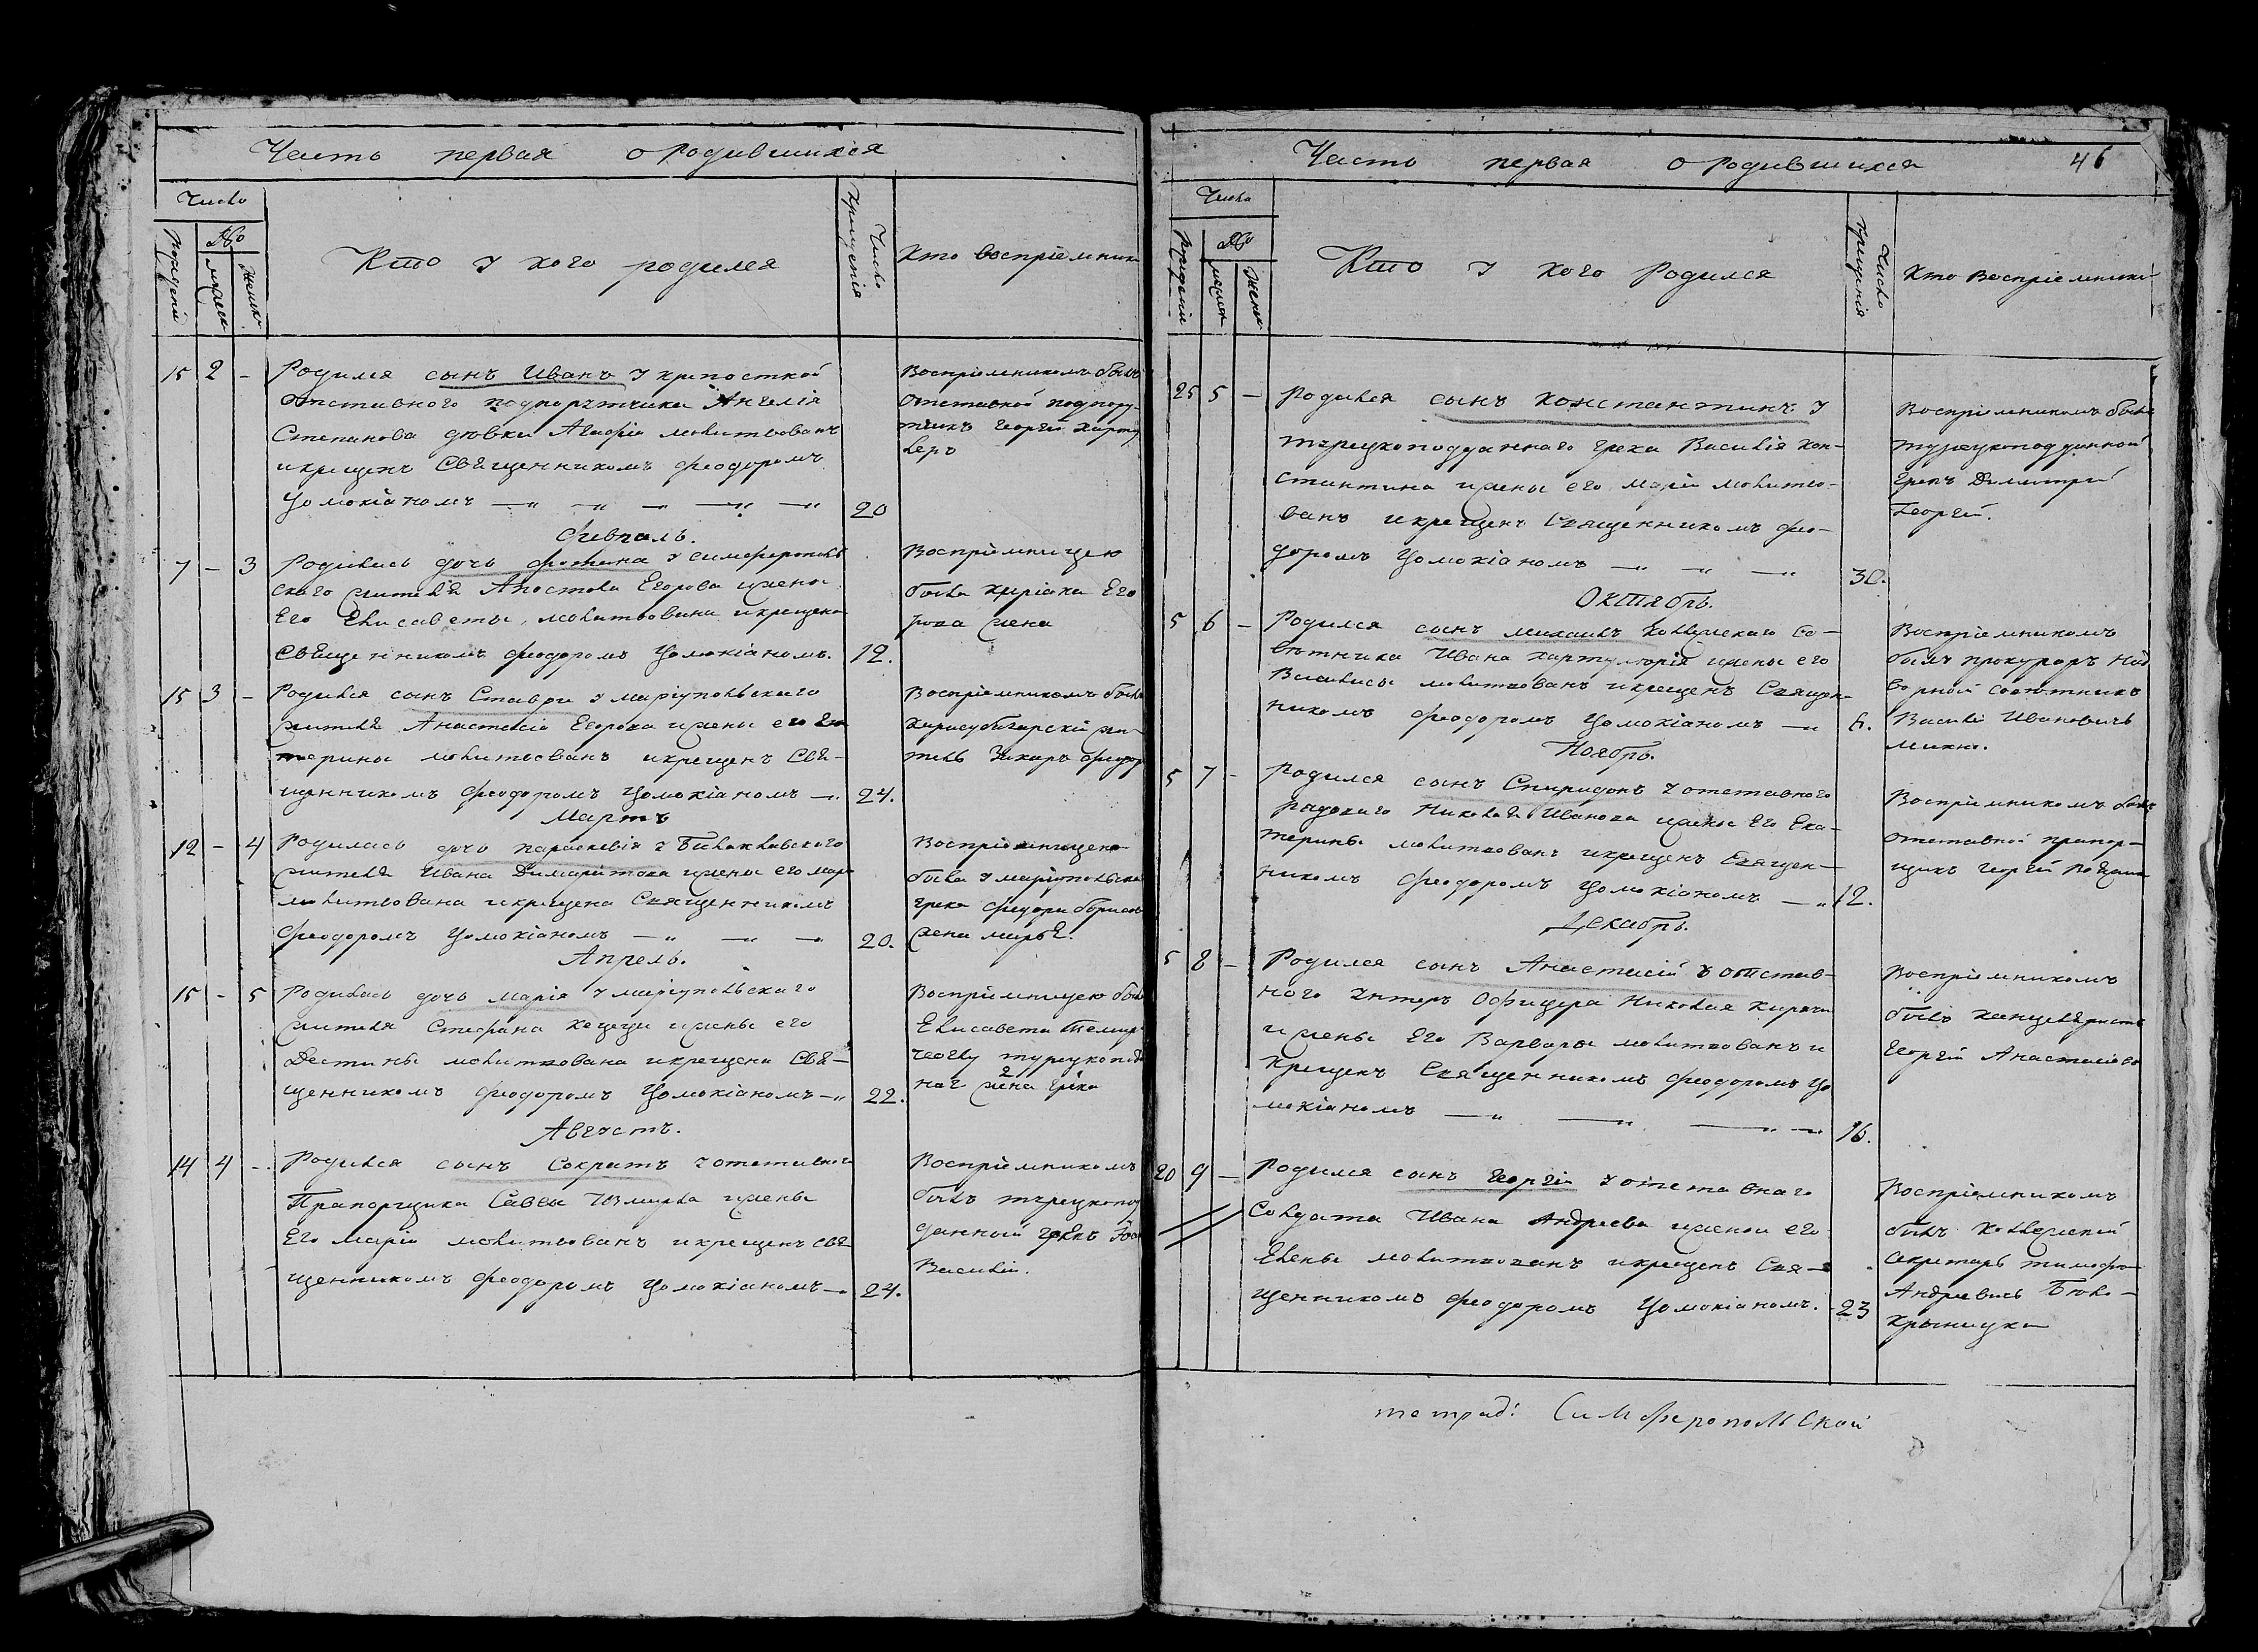 Часть первая о родившихся
Число
рожденій
№
мужск
женск
Кто у кого родился
Число крещенія
Кто воспріемник
15 2 - Родился сынъ Иванъ у крепосткой
отставного подпорутчика Ангелія
Степанова девки Агафіи молитвованъ
и крещенъ Священникомъ Феодоромъ
Цомокіаномъ 20
Воспріемникомъ былъ
отставной подпору-
тчикъ Георгій
Февраль.
7 - 3 Родилась дочь Фотина у симферополь
скаго жителя Апостола Егорова и жены
Его Елисаветы, молитвована и крещена
Священникомъ Феодоромъ Цомокіаномъ. 12.
Воспріемницею
была Киріака Его
рова жена
15 3 - Родился сынъ Ставри у маріупольскаго
жителя Анастасія Егорова и жены его Ека
терины молитвованъ и крещенъ Свя-
щенникомъ Феодоромъ Цомокіаномъ 24.
Воспріемникомъ былъ
Карасубазарскій жи-
тель Захаръ Феодор
Мартъ
12 - 4 Родилась дочь Параскевія у Балаклавскаго
жителя Ивана Димаритова и жены его Мар
молитвована и крещена Священникомъ
Феодоромъ Цомокіаномъ 20.
Воспріемницею
была у маріупольска
грека Федора Борисов
жена Марья.
Апрель.
15 - 5 Родилась дочь Марія у маріупольскаго
жителя Стефана и жены его
Дестины молитвована и крещена Свя-
щенникомъ Феодоромъ Цомокіаномъ 22.
Воспріемницею была
Елисавета
турецкопод
наг жена грека
Августъ.
14 4 - Родился сынъ Сократъ у отставного
Прапорщика Саввы и жены
Его Маріи молитвованъ и крещенъ Свя
щенникомъ Феодоромъ Цомокіаномъ 24.
Воспріемникомъ
былъ турецкопод
данный грекъ
Василій.
Часть первая о родившихся 46
Число
рожденія
№
мужск
женск
Кто у кого Родился
Число крещенія
Кто Воспріемники
25 5 - Родился сынъ Константинъ у
турецкоподданнаго грека Василія Кон-
стантина и жены его Маріи молитво-
ванъ и крещенъ Священникомъ Фео-
доромъ Цомокіаномъ 30.
Воспріемникомъ былъ
турецкоподданной
Грекъ Димитрій
Георгій.
Октябрь.
5 6 - Родился сынъ Михаилъ Коллежскаго Со-
ветника Ивана Хартуларія и жены его
Василисы молитвованъ и крещенъ Священ-
никомъ Феодоромъ Цомокіаномъ 6.
Воспріемникомъ
былъ прокуроръ Над
ворной советникъ
Василій Ивановичъ
Ноябрь.
5 7 - Родился сынъ Спиридонъ у отставного
рядоваго Николая Иванова и жены Его Ека-
терины молитвованъ и крещенъ Священ-
никомъ Феодоромъ Цомокіаномъ 12.
Воспріемникомъ былъ
отставной прапор-
щикъ Георгій
Декабрь.
5 8 - Родился сынъ Анастасій у отстав-
ного Унтеръ Офицера Николая
и жены Его Варвары молитвованъ и
Крещенъ Священникомъ Феодоромъ Цо
мокіаномъ 16.
Воспріемникомъ
былъ канцеляристъ
Георгій Анастасіево
20 9 - Родился сынъ Георгій у отставнаго
Солдата Ивана Андреева и жены его
Елены молитвованъ и крещенъ Свя-
щенникомъ Феодоромъ Цомокіаномъ. 23
Воспріемникомъ
былъ Коллежскій
Секретарь Тимофей
Андреевичъ Бело-
криницки
тетрад: Симферопольской